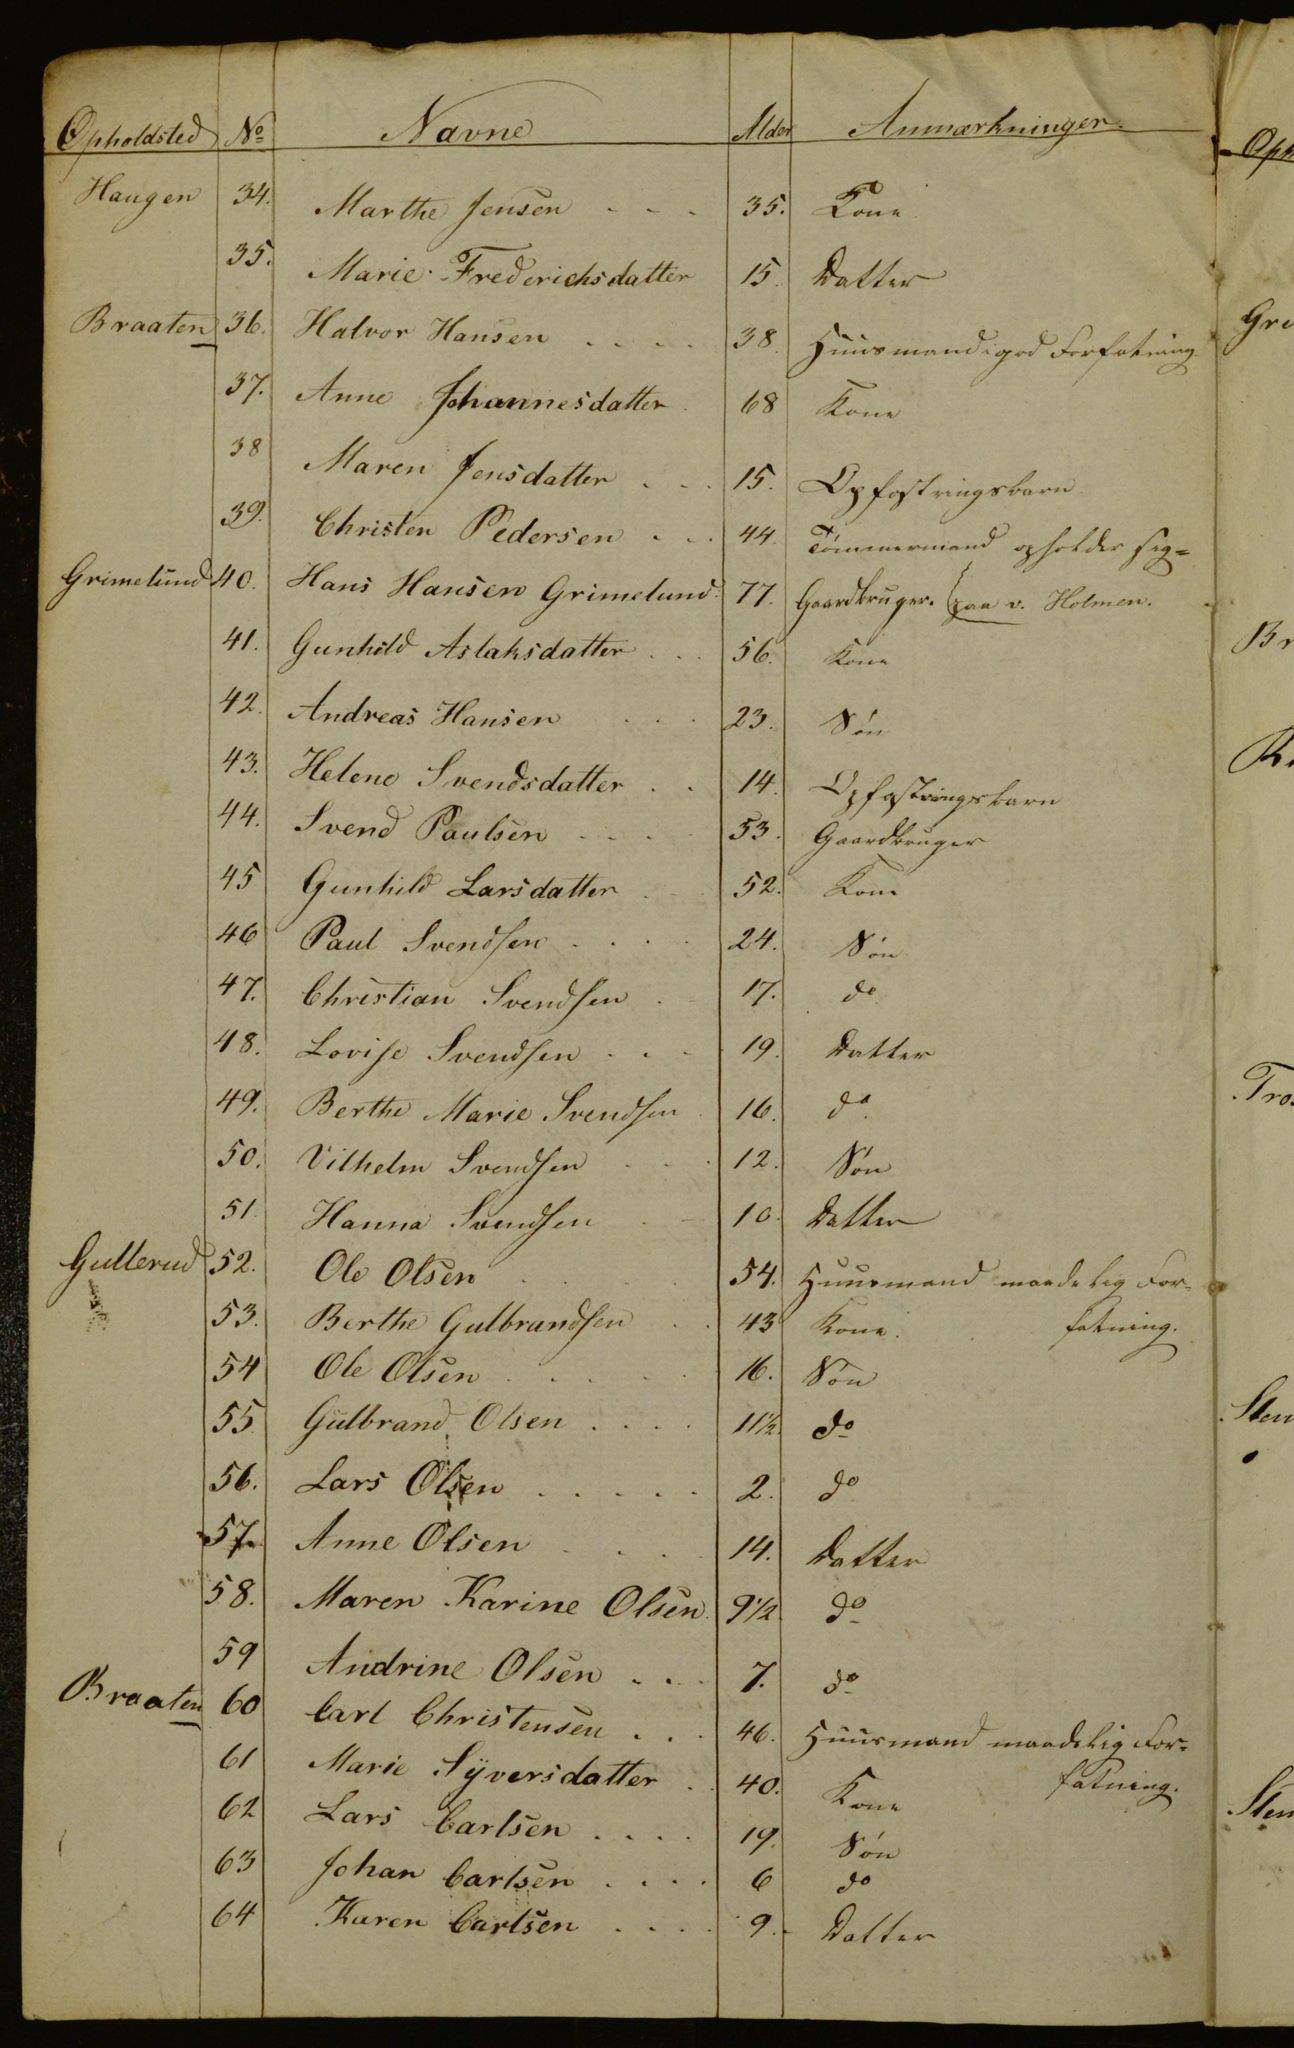 Opholdsted No Navne Alder Anmærkninger.
Haugen 34. Marthe Jensen - - - 35. Kone
35. Marie Frederichsdatter 15. Datter
Braaten 36. Halvor Hansen . . . . 38. Huusmand i god Forfatning.
37. Anne Johannesdatter. 68 Kone
38 Maren Jensdatter . . . 15. Opfostringsbarn
39. Christen Pedersen . . . 44. Tömmermand opholder sig=
Grimelund 40. Hans Hansen Grimelund. 77. Gaardbruger. (paa v. Holmen.
41. Gunhild Aslaksdatter . . . 56. Kone
42. Andreas Hansen . . . 23. Sön
43. Helene Svendsdatter . . 14. Opfostringsbarn
44. Svend Paulsen . . . . 53. Gaardbruger
45 Gunhild Larsdatter . . 52. Kone
46 Paul Svendsen . . . . 24. Sön
47. Christian Svendsen . . 17. do
48. Lovise Svendsen . . . 19. Datter
49. Berthe Marie Svendsen 16. do.
50. Vilhelm Svendsen . . . 12. Sön
51. Hanna Svendsen . . 10. Datter
Gullerud 52. Ole Olsen . . . . 54. Huusmand maadelig For-
53. Berthe Gulbrandsen . . 43 Kone. fatning.
54 Ole Olsen . . . . . 16. Sön
55. Gulbrand Olsen . . . . 11½. do
56. Lars Olsen . . . . . 2. do
57. Anne Olsen . . . 14. Datter
58. Maren Karine Olsen. 9½ do
59 Andrine Olsen . . . 7. do
Braaten 60 Carl Christensen . . . 46. Huusmand maadelig For-
61 Marie Syversdatter . . 40. Kone fatning.
62 Lars Carlsen . . . . 19. Sön
63 Johan Carlsen . . . . 6 do
64 Karen Carlsen . . . . 9. Datter
Oph
Gri
Br
Tro
Sten
Sten